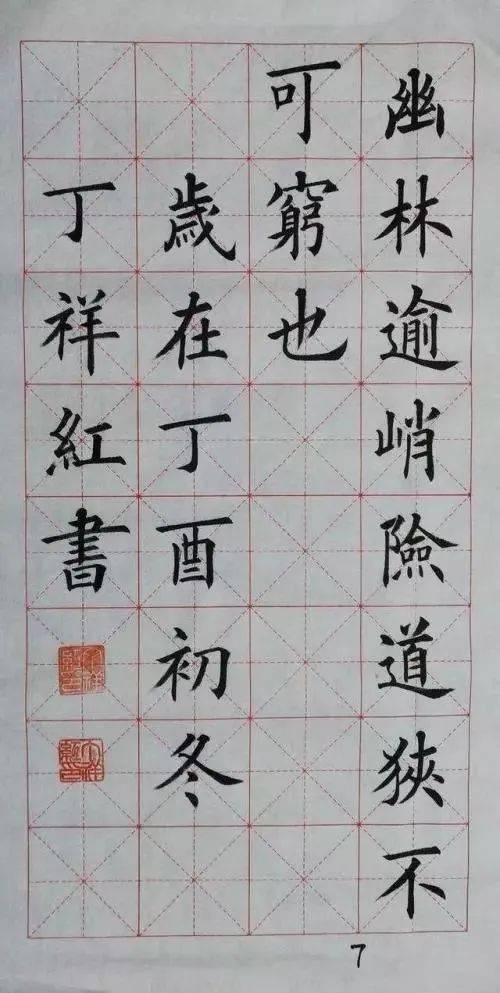 幽林逾峭險道狹不
可窮也
歳在丁酉初冬
丁祥紅書
7